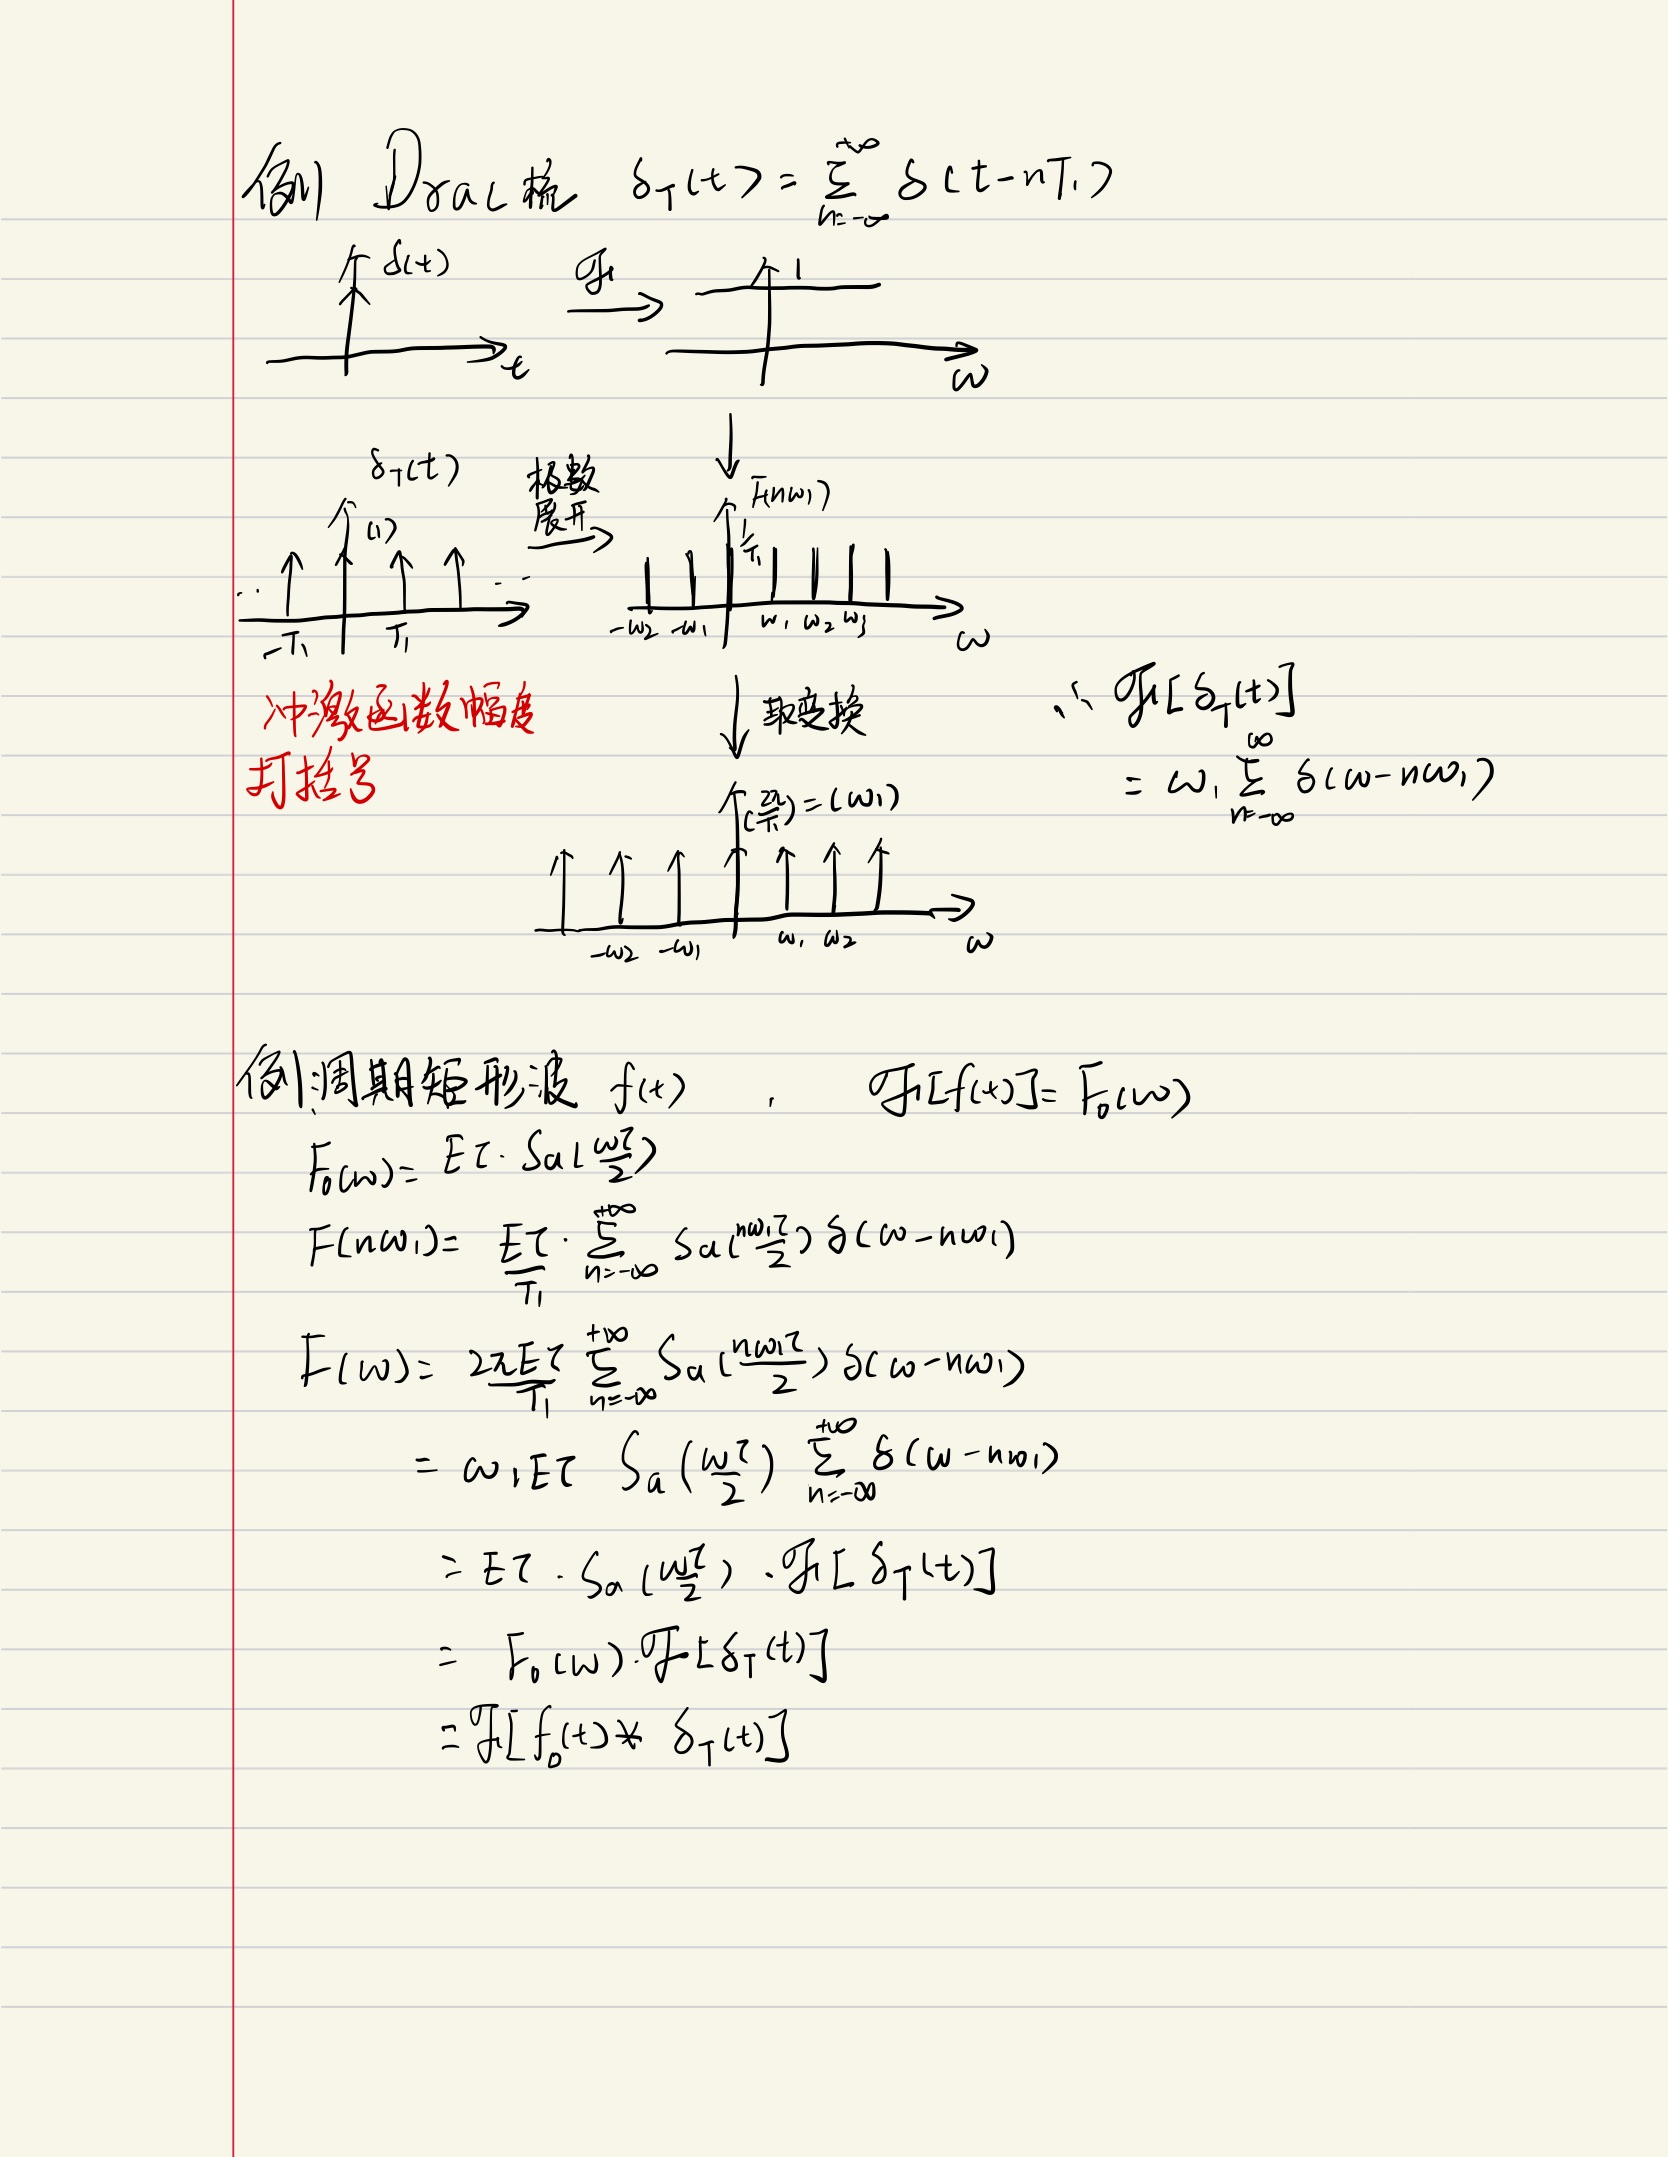 例 Drac梳 δ_T(t) = Σ_{n=-∞}^{+∞} δ(t-nT₁)
δ(t) 𝓕 1
t ω
δ_T(t) 级数展开 F(nω₁)
(1) 1/T₁
-T₁ T₁ -ω₂ -ω₁ ω₁ ω₂ ω₃ ω
冲激函数幅度
打括号
取变换
(2π/T₁) = (ω₁)
-ω₂ -ω₁ ω₁ ω₂ ω
∴ 𝓕[δ_T(t)]
= ω₁ Σ_{n=-∞}^{∞} δ(ω-nω₁)
例:周期矩形波 f(t) , 𝓕[f(t)] = F₀(ω)
F₀(ω) = Eτ · Sa(ωτ/2)
F(nω₁) = Eτ/T₁ · Σ_{n=-∞}^{+∞} Sa(nω₁τ/2) δ(ω-nω₁)
F(ω) = 2πEτ/T₁ Σ_{n=-∞}^{+∞} Sa(nω₁τ/2) δ(ω-nω₁)
= ω₁Eτ Sa(ωτ/2) Σ_{n=-∞}^{+∞} δ(ω-nω₁)
= Eτ · Sa(ωτ/2) · 𝓕[δ_T(t)]
= F₀(ω) · 𝓕[δ_T(t)]
= 𝓕[f₀(t) * δ_T(t)]